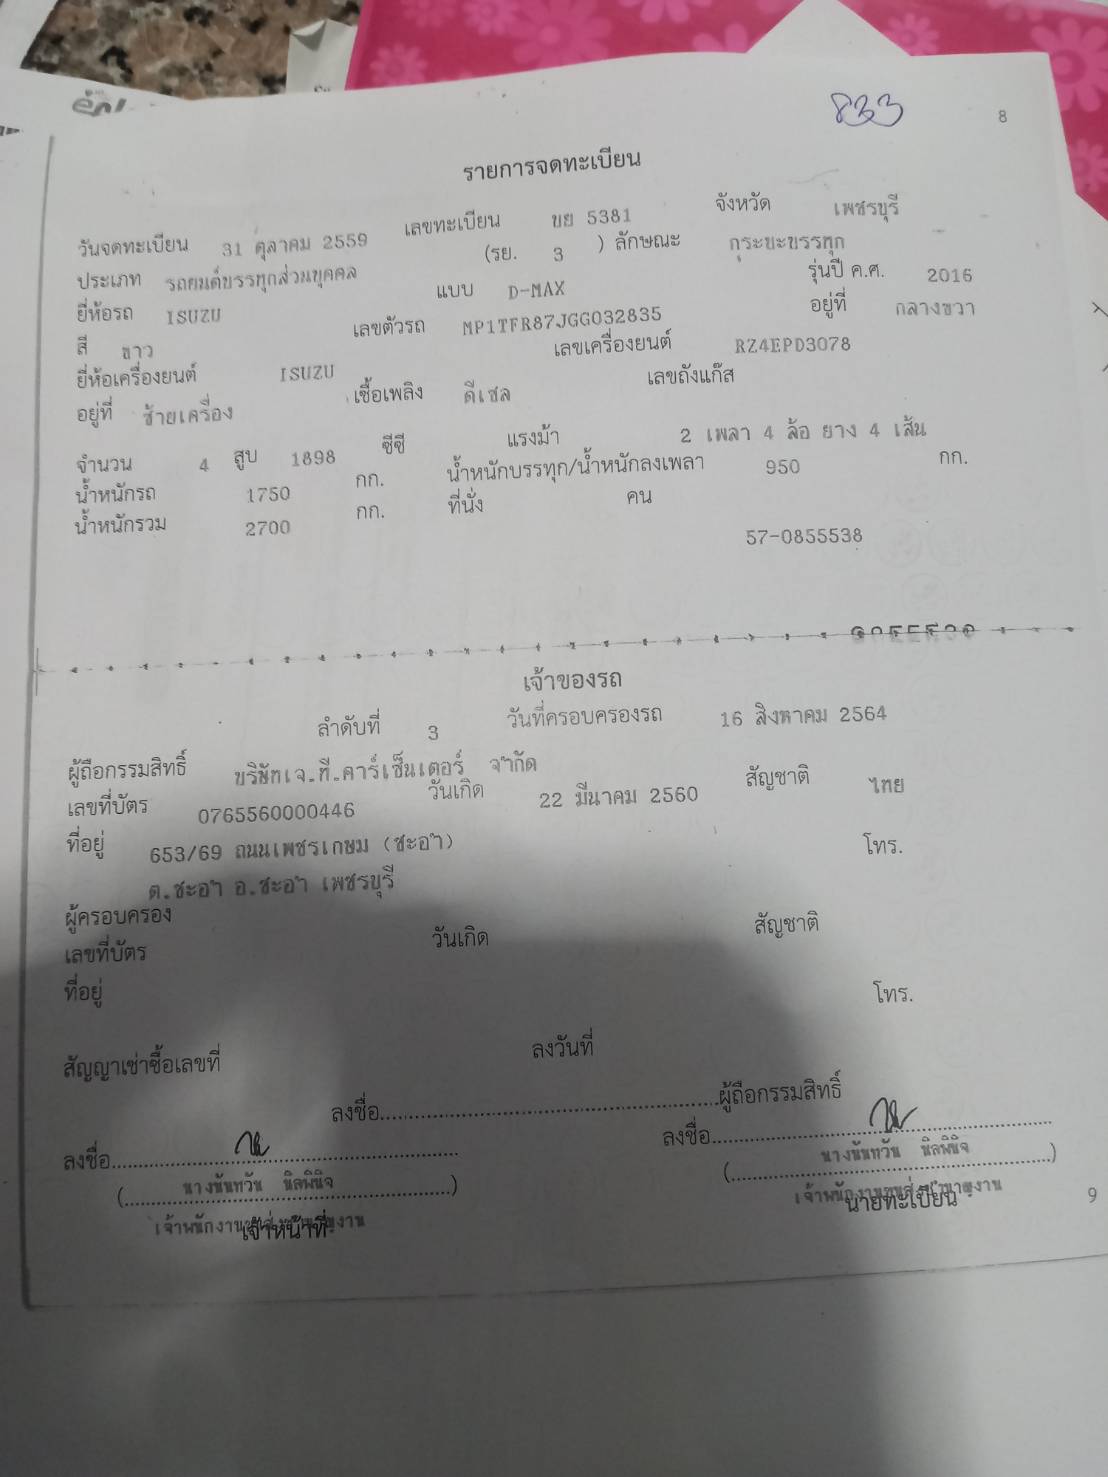 833
8
รายการจดทะเบียน
วันจดทะเบียน 31 ตุลาคม 2559 เลขทะเบียน ขย 5381 จังหวัด เพชรบุรี
ประเภท รถยนต์บรรทุกส่วนบุคคล (รย. 3 ) ลักษณะ กระบะบรรทุก
ยี่ห้อรถ ISUZU แบบ D-MAX รุ่นปี ค.ศ. 2016
สี ขาว เลขตัวรถ MP1TFR87JGG032835 อยู่ที่ กลางขวา
ยี่ห้อเครื่องยนต์ ISUZU เลขเครื่องยนต์ RZ4EPD3078
อยู่ที่ ซ้ายเครื่อง เชื้อเพลิง ดีเซล เลขถังแก๊ส
จำนวน 4 สูบ 1898 ซีซี แรงม้า 2 เพลา 4 ล้อ ยาง 4 เส้น
น้ำหนักรถ 1750 กก. น้ำหนักบรรทุก/น้ำหนักลงเพลา 950 กก.
น้ำหนักรวม 2700 กก. ที่นั่ง คน
57-0855538
เจ้าของรถ
ลำดับที่ 3 วันที่ครอบครองรถ 16 สิงหาคม 2564
ผู้ถือกรรมสิทธิ์ บริษัทเจ.ที.คาร์เซ็นเตอร์ จำกัด
เลขที่บัตร 0765560000446 วันเกิด 22 มีนาคม 2560 สัญชาติ ไทย
ที่อยู่ 653/69 ถนนเพชรเกษม (ชะอำ) โทร.
ต.ชะอำ อ.ชะอำ เพชรบุรี
ผู้ครอบครอง
เลขที่บัตร วันเกิด สัญชาติ
ที่อยู่ โทร.
สัญญาเช่าซื้อเลขที่ ลงวันที่
ลงชื่อ........................................ผู้ถือกรรมสิทธิ์
ลงชื่อ........................................ ลงชื่อ........................................
(นางนันทวัน นิลพินิจ) (นางนันทวัน นิลพินิจ)
เจ้าหน้าที่ นายทะเบียน
9